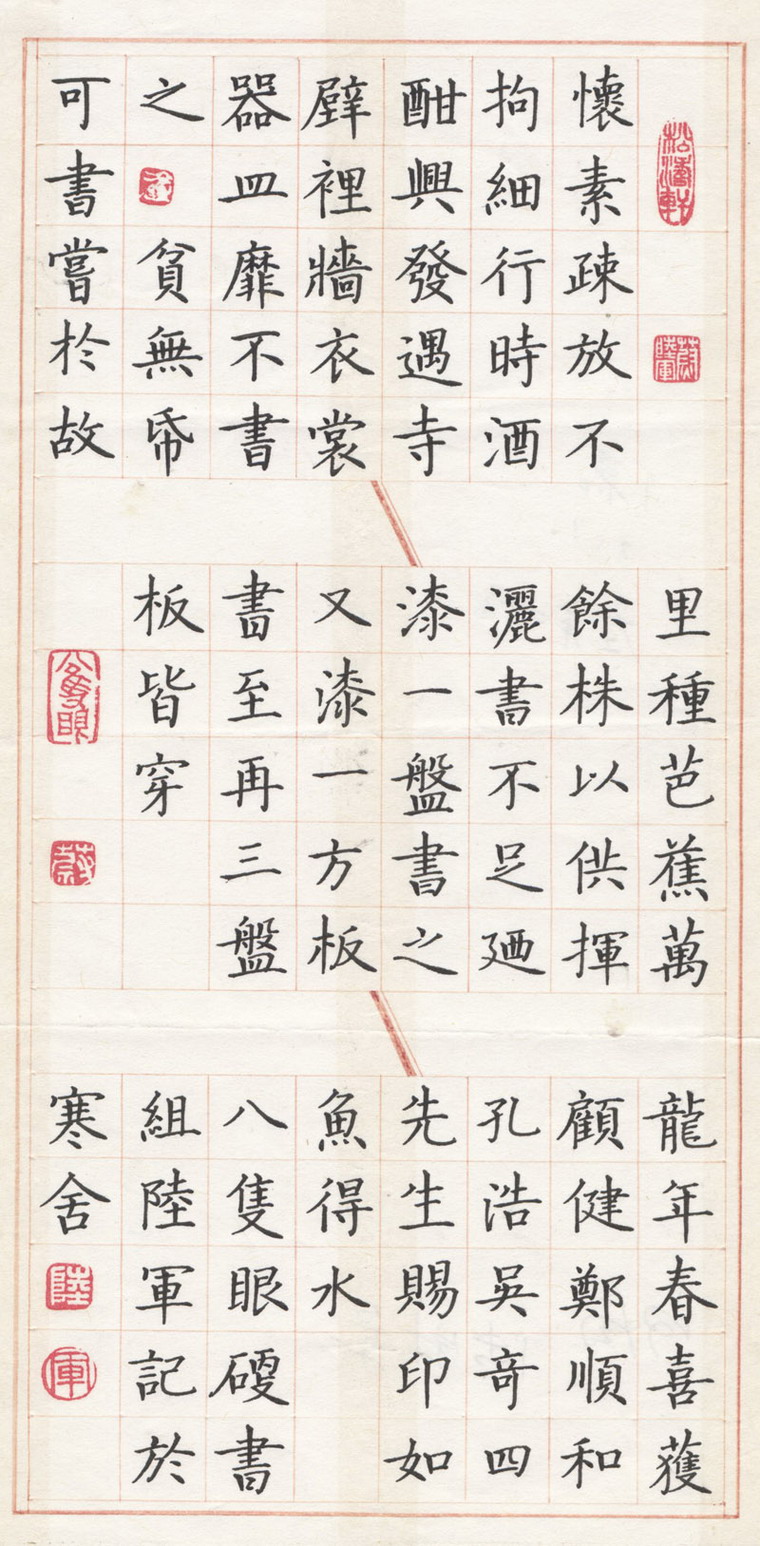 懷素疎放不
拘細行時酒
酣興發遇寺
壁裡牆衣裳
器皿靡不書
之貧無帋
可書嘗於故
里種芭蕉萬
餘株以供揮
灑書不足廼
漆一盤書之
又漆一方板
書至再三盤
板皆穿
龍年春喜獲
顧健鄭順和
孔浩吳竒四
先生賜印如
魚得水
八隻眼硬書
組陸軍記於
寒舍
陸
軍
八隻眼